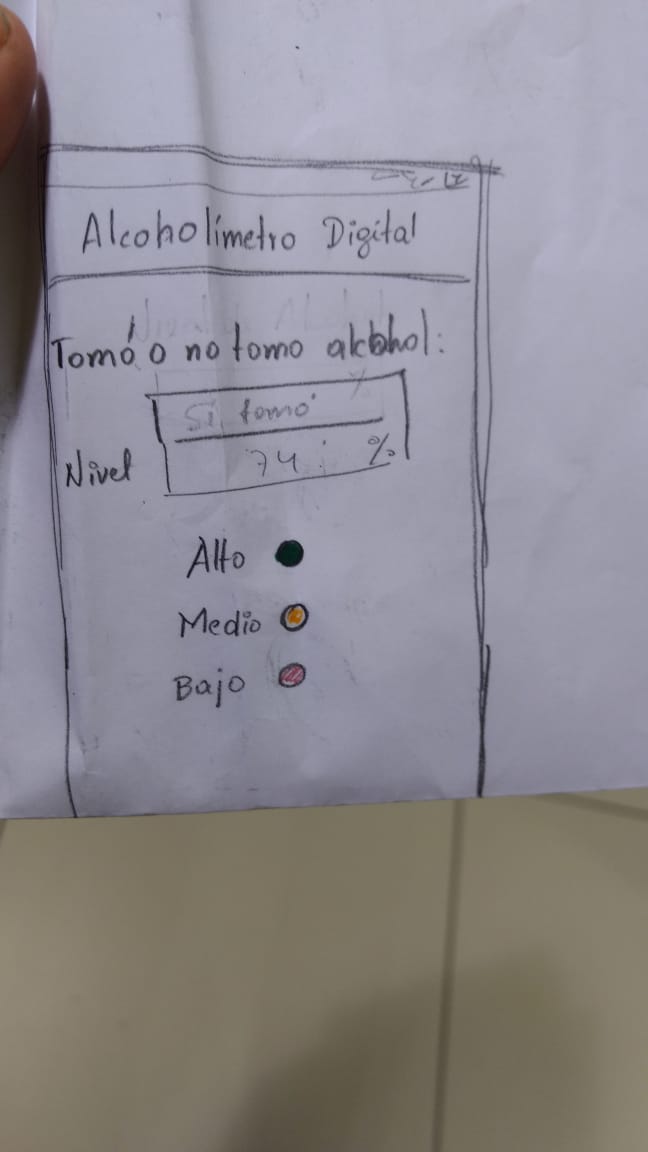 Alcoholímetro Digital
Tomó o no tomo alcohol:
Si tomó
Nivel 74 %
Alto
Medio
Bajo